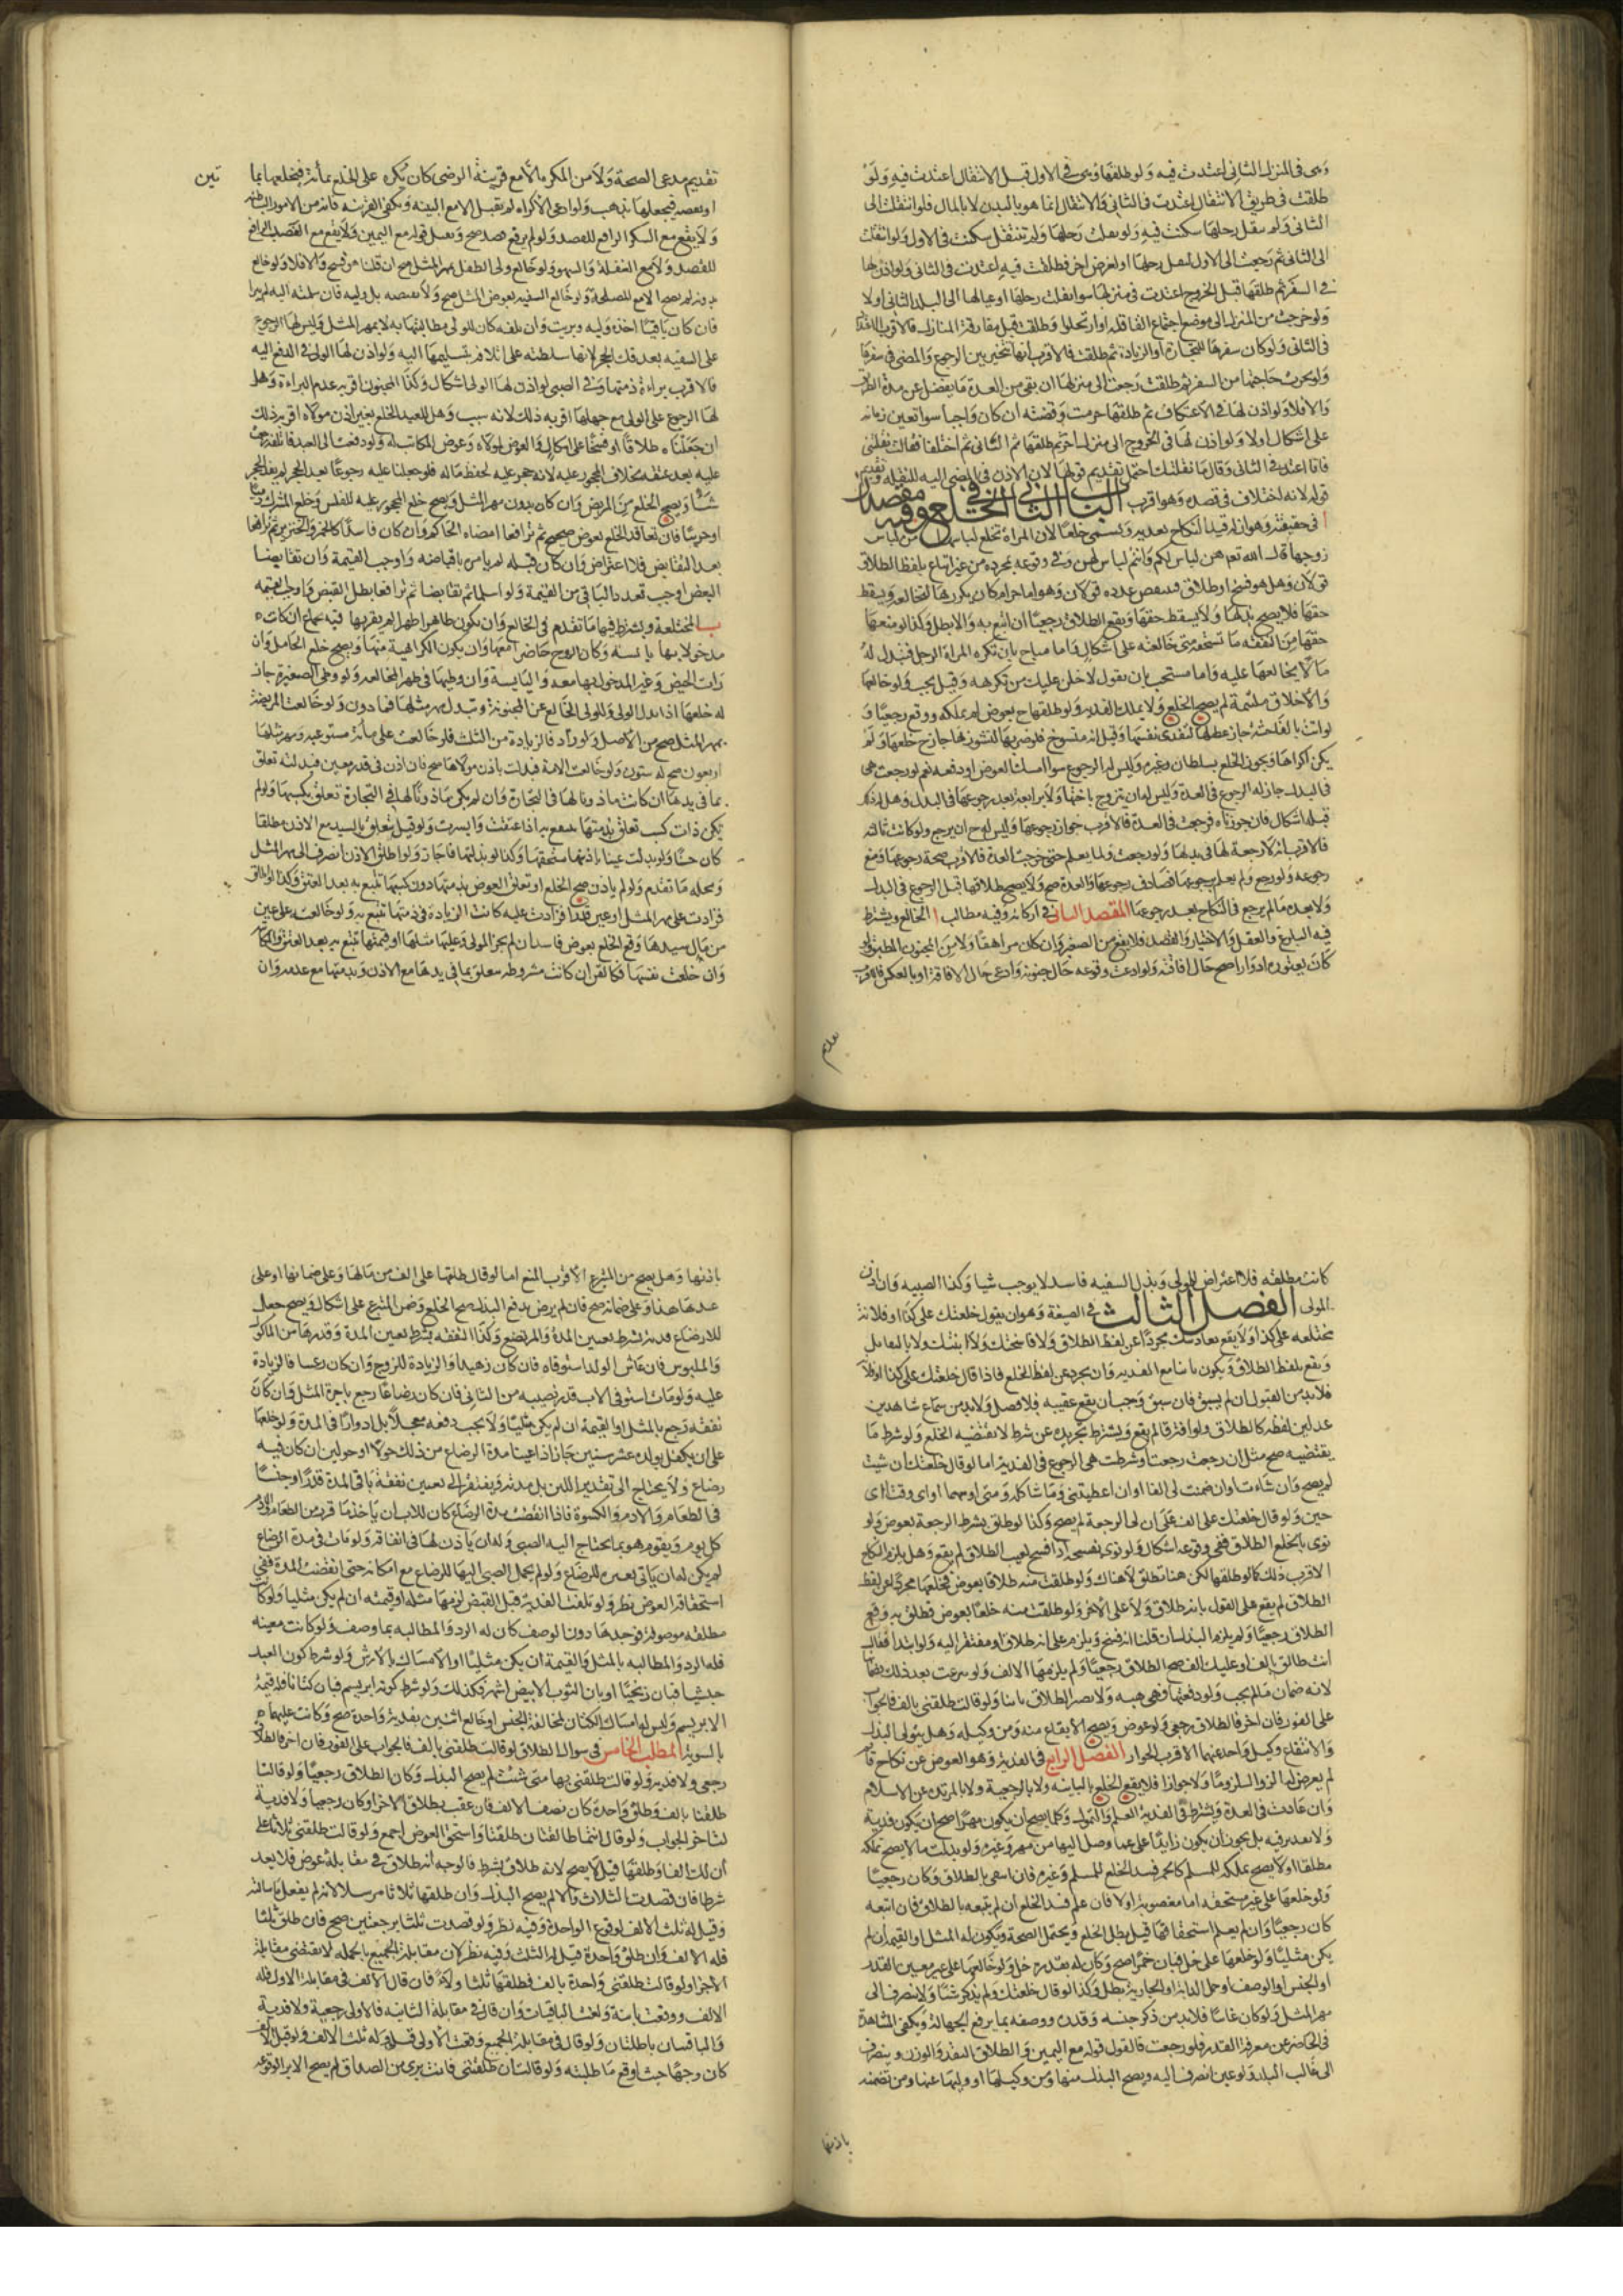 وهى فى المنزل الثانى اعتدت فيه ولو طلقها وهى فى الاول قبل الانتقال اعتدت فيه ولو
طلقت فى طريق الانتقال اعتدت فى الثانى والانتقال انما هو بالبدن لا بالمال فلو انتقلت الى
الثانى ولم ينقل رحلها سكنت فيه ولو نقلت رحلها ولم تنتقل سكنت فى الاول ولو انتقلت
الى الثانى ثم رجعت الى الاول لنقل رحلها او لغرض اخر فطلقت فيه اعتدت فى الثانى ولو اذن لها
فى السفر ثم طلقها قبل الخروج اعتدت فى منزلها سوا نقلت رحلها او عيالها الى البلد الثانى اولا
ولو خرجت من المنزل الى موضع اجتماع القافلة او ارتحلوا وطلقت قبل مفارقة المنازل فالاقرب الاعتداد
فى الثانى ولو كان سفرها للتجارة او الزيادة ثم طلقت فالاقرب انها تتخير بين الرجوع والمضى فى سفرها
حاجتها من السفر ثم طلقت رجعت الى منزلها ان بقى من العدة ما يفضل عن مدة الطريق
والا فلا ولو اذن لها فى الاعتكاف ثم طلقها خرجت وقضته ان كان واجبا سوا تعين زمانه
على اشكال اولا ولو اذن لها فى الخروج الى منزل اخر ثم طلقها ثم اختلفا فقالت نقلتنى
فانا اعتد فى الثانى وقال ما نقلتك احتمل تقديم قولها لان الاذن فى المضى اليه للنقلة وتقديم
قوله لانه اختلاف فى قصده وهو اقرب الباب الثانى فى الخلع وفيه مقصدان
ا فى حقيقته وهو ازالة قيد النكاح بفدية ويسمى خلعا لان المراة تخلع لباسها من لباس
زوجها قال الله تعم هن لباس لكم وانتم لباس لهن وفى وقوعه بمجرده من غير اتباع بلفظ الطلاق
قولان وهل هو فسخ او طلاق ينقص عدده قولان وهو اما حرام كان يكرهها لتخالعه ويسقط
حقها فلا يصح بذلها ولا يسقط حقها ويقع الطلاق رجعيا ان اتبع به والا بطل وكذا لو منعها
حقها من النفقة وما تستحقه حتى خالعته على اشكال واما مباح بان تكره المراة الرجل فتبذل له
مالا ليخالعها عليه واما مستحب بان يقول لادخلن عليك من تكرهه وقيل يجب ولو خالعها
والاخلاق ملتئمة لم يصح الخلع ولا يملك الفدية ولو طلقها ح بعوض لم يملكه ووقع رجعيا و
لو اتت بالفاحشة جاز عضلها لتفدى نفسها وقيل انه منسوخ فلو ضربها للنشوز جاز ح خلعها ولم
يكن اكراها ويجوز الخلع بسلطان وغيره وليس له الرجوع سوا امسك العوض او دفعه نعم لو رجعت هى
فى البذل جاز له الرجوع فى العدة وليس له ان يتزوج باختها ولا برابعة بعد رجوعها فى البذل وهل له ذلك
قبله اشكال فان جوزناه فرجعت فى العدة فالاقرب جواز رجوعها وليس له ح ان يرجع ولو كانت ثالثة
فالاقرب انه لا رجعة لها فى بذلها ولو رجعت ولما يعلم حتى خرجت العدة فالاقرب صحة رجوعها ومنع
رجوعه ولو رجع ولم يعلم برجوعها فصادف رجوعها والعدة صح ولا يصح طلاقها قبل الرجوع فى البذل
ولا بعده ما لم يرجع فى النكاح بعد رجوعها المقصد الثانى فى اركانه وفيه مطالب ا الخالع ويشترط
فيه البلوغ والعقل والاختيار والقصد فلا يقع من الصغير وان كان مراهقا ولا من المجنون المطبق ولو
كان يعتوره ادوارا صح حال افاقته ولو ادعت وقوعه حال جنونه وادعى حال الافاقة او بالعكس فالاقرب
تقديم مدعى الصحة ولا من المكره الا مع قرينة الرضى كان يكره على الخلع بمائة فيخلعها بما
ولا يقع مع السكر الرافع للقصد ولو لم يرفع قصده صح ويقبل قوله مع اليمين ولا يقع مع الغضب الرافع
للقصد ولا مع الغفلة والسهو ولو خالع ولى الطفل بمهر المثل صح ان قلنا هو فسخ والا فلا ولو خالع
بدونه لم يصح الا مع المصلحة ولو خالع السفيه بعوض المثل صح ولا يقبضه بل وليه فان سلمته اليه لم تبرا
فان كان باقيا اخذه وليه وبريت وان تلف كان للولى مطالبتها به لا بمهر المثل وليس لها الرجوع
على السفيه بعد فك الحجر لانها سلطته على اتلافه بتسليمها اليه ولو اذن لها الولى فى الدفع اليه
فالاقرب براءة ذمتها وفى الصبى لو اذن لها الولى اشكال وكذا المجنون اقربه عدم البراءة وهل
لها الرجوع على الولى مع جهلها اقربه ذلك لانه سبب وهل للعبد الخلع بغير اذن مولاه اقربه ذلك
ان جعلناه طلاقا او فسخا على اشكال والعوض لمولاه وعوض المكاتب له ولو دفعت الى العبد فاتلفه رجعت
عليه بعد عتقه بخلاف المحجور عليه لانه حجر عليه لحفظ ماله فلو جعلنا عليه رجوعا بعد الحجر لم يفد الحجر
شيئا ويصح الخلع من المريض وان كان بدون مهر المثل ويصح خلع المحجور عليه للفلس وخلع المشرك ذميا
او حربيا فان تعاقدا الخلع بعوض صحيح ثم ترافعا امضاه الحاكم وان كان فاسدا كالخمر والخنزير ثم ترافعا
بعد التقابض فلا اعتراض وان كان قبله لم يامر باقباضه واوجب القيمة وان تقابضا
البعض اوجب بقدر الباقى من القيمة ولو اسلما ثم تقابضا ثم ترافعا بطل القبض واوجب القيمة
ب المختلعة ويشترط فيها ما تقدم فى الخالع وان يكون طاهرا طهرا لم يقربها فيه بجماع ان كانت
مدخولا بها غير يائسة وكان الزوج حاضرا معها وان يكون الكراهية منها ويصح خلع الحامل وان
رات الحيض وغير المدخول بها معه واليايسة وان وطيها فى طهر المخالعة ولو وطى الصغيرة جاز
له خلعها اذا بذل الولى وللولى الخالع عن المجنونة ويبذل مهر مثلها فما دون ولو خالعت المريضة
بمهر المثل صح من الاصل ولو زاد فالزيادة من الثلث فلو خالعت على مائة مستوعبه ومهر مثلها
اربعون صح له ستون ولو خالعت الامة فبذلت باذن مولاها صح فان اذن فى قدر معين فبذلته تعلق
بما فى يدها ان كانت ماذونا لها فى التجارة وان لم يكن ماذونا لها فى التجارة تعلق بكسبها ولو لم
يكن ذات كسب تعلق بذمتها تتبع به اذا عتقت وايسرت ولو قيل يتعلق بالسيد مع الاذن مطلقا
كان حسنا ولو بذلت عينا باذنها استحقها وكذا لو بذلتها فاجاز ولو اطلق الاذن انصرف الى مهر المثل
ومحله ما تقدم ولو لم ياذن صح الخلع او تعلق العوض بذمتها دون كسبها تتبع به بعد العتق وكذا لو اطلق
فزادت على مهر المثل او عين قدرا فزادت عليه كانت الزيادة فى ذمتها تتبع به ولو خالعته على عين
من مال سيدها وقع الخلع بعوض فاسد ان لم يجز المولى وعليها مثلها او قيمتها تتبع به بعد العتق والمكاتبة
وان خلعت نفسها فكالقن ان كانت مشروطة يتعلق بما فى يدها مع الاذن وبذمتها مع عدمه وان
كانت مطلقة فلا اعتراض للمولى وبذل السفيه فاسد لا يوجب شيا وكذا الصبية وان اذن
المولى الفصل الثالث فى الصيغة وهو ان يقول خلعتك على كذا او فلانة
مختلعة على كذا ولا يقع بفاديتك مجردا عن لفظ الطلاق ولا فاسختك ولا ابنتك ولا بالتقايل
ويقع بلفظ الطلاق ويكون باينا مع الفدية وان تجرد عن لفظ الخلع فاذا قال خلعتك على كذا
فلا بد من القبول ان لم يسبق فان سبق وجب ان يقع عقيبه بلا فصل ولا بد من سماع شاهدين
عدلين لفظه كالطلاق ولو افترقا لم يقع ويشترط تجريده عن شرط لا يقتضيه الخلع ولو شرط ما
يقتضيه صح مثل ان رجعت رجعت او شرطت هى الرجوع فى الفدية اما لو قال خلعتك ان شئت
لم يصح وان شاءت او ان ضمنت لى الفا او ان اعطيتنى وما شاكله ومتى او مهما او اى وقت او اى
حين ولو قال خلعتك على الف على ان لى الرجعة لم يصح وكذا لو طلق بشرط الرجعة بعوض ولو
نوى بالخلع الطلاق ففى وقوعه اشكال
الاقرب ذلك كما لو طلقها لكن هنا تطلق لا هناك ولو طلقت منه طلاقا بعوض فخلعها مجردا عن لفظ
الطلاق لم يقع على القول بانه طلاق ولا على الاخر ولو طلقت منه خلعا بعوض فطلق به وقع
الطلاق رجعيا ولم يلزم البذل ان قلنا انه فسخ ويلزم على انه طلاق او مفتقر اليه ولو ابتدا فقال
انت طالق بالف او عليك الف صح الطلاق رجعيا ولم يلزمها الالف ولو تبرعت بعد ذلك بضمانها
لانه ضمان ما لم يجب ولو دفعتها فهى هبة ولا يصير الطلاق باينا ولو قالت طلقنى بالف فالجواب
على الفور فان اخر فالطلاق رجعى ولا عوض ويصح الايقاع منه ومن وكيله وهل يتولى البذل
والايقاع وكيل واحد عنهما الاقرب الجواز الفصل الرابع فى الفدية وهو العوض عن نكاح قائم
لم يعرض له الزوال لزوما ولا جوازا فلا يقع الخلع بالباينة ولا بالرجعية ولا بالمرتدة عن الاسلام
وان عادت فى العدة ويشترط فى الفدية العلم والتمول وكلما يصح ان يكون مهرا صح ان يكون فدية
ولا تقدير فيه بل يجوز ان يكون زايدا على ما وصل اليها من مهر وغيره ولو بذلت ما لا يصح تملكه
مطلقا او لا يصح تملكه للمسلم كالخمر فسد الخلع للمسلم وغيره فان اتبع بالطلاق وكان رجعيا
ولو خلعها على عين مستحقة اما مغصوبة اولا فان علم فسد الخلع ان لم يتبعه بالطلاق فان اتبعه
كان رجعيا وان لم يعلم استحقاقها قيل يبطل الخلع ويحتمل الصحة ويكون له المثل او القيمة ان لم
يكن مثليا ولو خلعها على خل فبان خمرا صح وكان له بقدره خل ولو خالعها على غير معين القدر
او الجنس او الوصف او حمل الدابة او الجارية بطل وكذا لو قال خلعتك ولم يذكر شيئا ولا ينصرف الى
مهر المثل ولو كان غايبا فلا بد من ذكر جنسه وقدره ووصفه بما يرفع الجهالة ويكفى المشاهدة
فى الحاضر عن معرفة القدر فلو رجعت فالقول قوله مع اليمين والطلاق النقد والوزن وينصرف
الى غالب البلد ولو عين انصرف اليه ويصح البذل منها ومن وكيلها او وليها عنها وممن يضمنه
باذنها وهل يصح من المتبرع الاقرب المنع اما لو قال طلقها على الف من مالها وعلى ضمانها او على
عبدها هذا وعلى ضمانه صح فان لم يرض بدفع البذل صح الخلع وضمن المتبرع على اشكال ويصح جعل
الارضاع فدية بشرط تعيين المدة والمرتضع وكذا النفقة بشرط تعيين المدة وقدرها من الماكول
والملبوس فان عاش الولد استوفاه فان كان زهيدا والزيادة للزوج وان كان رغيبا فالزيادة
عليه ولو مات استوفى الاب قدر نصيبه من الثانى فان كان رضاعا رجع باجرة المثل وان كان
نفقة رجع بالمثل او القيمة ان لم يكن مثليا ولا يجب دفعه معجلا بل ادوارا فى المدة ولو خلعها
على ان يكفل بولده عشر سنين جاز اذا عينا مدة الرضاع من ذلك حولا او حولين ان كان فيه
رضاع ولا يحتاج الى تقدير اللبن بل مدته ويفتقر الى تعيين نفقة باقى المدة قدرا وجنسا
فى الطعام والادم والكسوة فاذا انقضت مدة الرضاع كان للاب ان ياخذ ما قرر من الطعام والادم
كل يوم ويقوم هو بما يحتاج اليه الصبى وله ان ياذن لها فى انفاقه ولو مات فى مدة الرضاع
لم يكن له ان ياتى بغيره للرضاع ولو لم يحمل الصبى اليها للرضاع مع امكانه حتى انقضت المدة ففى
استحقاقه العوض نظر ولو تلفت الفدية قبل القبض لزمها مثله او قيمته ان لم يكن مثليا ولو كانت
مطلقة موصوفة فوجدها دون الوصف كان له الرد والمطالبة بما وصف ولو كانت معينة
فله الرد والمطالبة بالمثل والقيمة ان يكن مثليا او الامساك بالارش ولو شرط كون العبد
حبشيا فبان زنجيا او بان الثوب الابيض اسمر فكذلك ولو شرط كونه ابريسم فبان كتانا فله قيمة
الابريسم وليس له امساك الكتان لمخالفة الجنس او خالع اثنين بفدية واحدة صح وكانت عليهما
بالسوية المطلب الخامس فى سوال الطلاق لو قالت طلقنى بالف فالجواب على الفور فان اخر فالطلاق
رجعى ولا فدية ولو قالت طلقنى بها متى شئت لم يصح البذل وكان الطلاق رجعيا ولو قالتا
طلقنا بالف وطلق واحدة كان نصف الالف فان عقب بطلاق الاخرى كان رجعيا ولا فدية
لتاخر الجواب ولو قال انتما طالقتان طلقتا واستحق العوض اجمع ولو قالت طلقنى ثلاثا على
ان لك الفا وطلقها قيل لا يصح لانه طلاق بشرط فالوجه انه طلاق فى مقابلة عوض فلا يعد
شرطا فان قصدت الثلاث ولاء لم يصح البذل وان طلقها ثلاثا مرسلا لانه لم يفعل ما سالته
وقيل له ثلث الالف لوقوع الواحدة وفيه نظر ولو قصدت ثلثا برجعتين صح فان طلق ثلثا
فله الالف وان طلق واحدة قيل له الثلث وفيه نظر لان مقابلة الجميع بالجملة لا يقتضى مقابلة
الاجزا ولو قالت طلقنى واحدة بالف فطلقها ثلثا ولاء فان قال الالف فى مقابلة الاول فله
الالف ووقعت باينة ولغت الباقيات وان قال فى مقابلة الثانية فالاولى رجعية ولا فدية
والباقيتان باطلتان ولو قال فى مقابلة الجميع وقعت الاولى قيل له ثلث الالف ولو قيل الالف
كان وجها حيث اوقع ما طلبته ولو قالت ان طلقتنى فانت برى من الصداق لم يصح الابرا